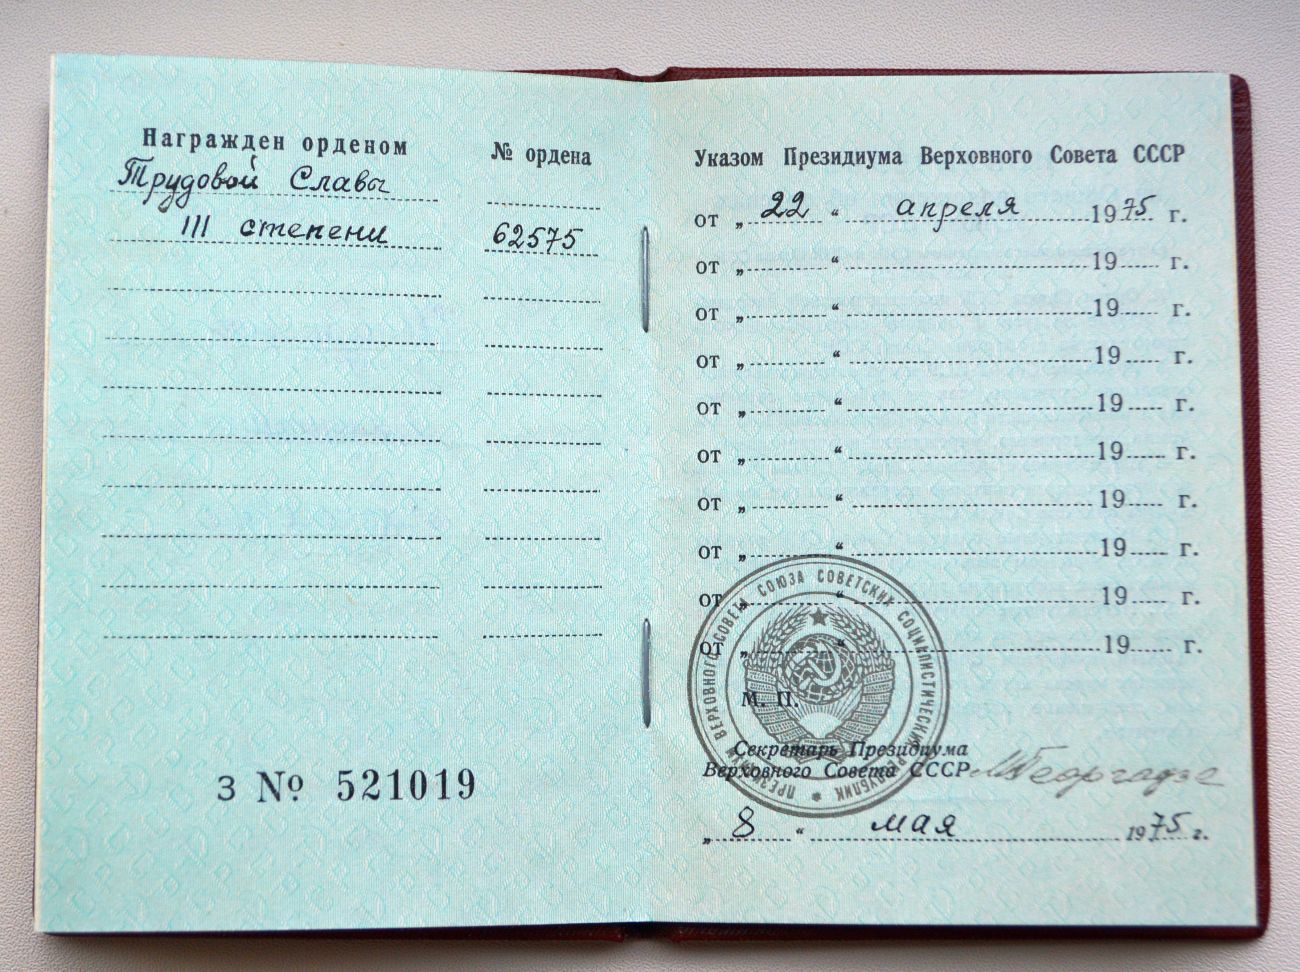 Награжден орденом
№ ордена
Трудовой Славы
III степени
62575
З № 521019
Указом Президиума Верховного Совета СССР
от „ 22 “ апреля 1975 г.
от „ “ 19 г.
от „ “ 19 г.
от „ “ 19 г.
от „ “ 19 г.
от „ “ 19 г.
от „ “ 19 г.
от „ “ 19 г.
от „ “ 19 г.
от „ “ 19 г.
ПРЕЗИДИУМ ВЕРХОВНОГО СОВЕТА СОЮЗА СОВЕТСКИХ СОЦИАЛИСТИЧЕСКИХ РЕСПУБЛИК
М. П.
Секретарь Президиума
Верховного Совета СССР МГеоргадзе
„ 8 “ мая 1975 г.